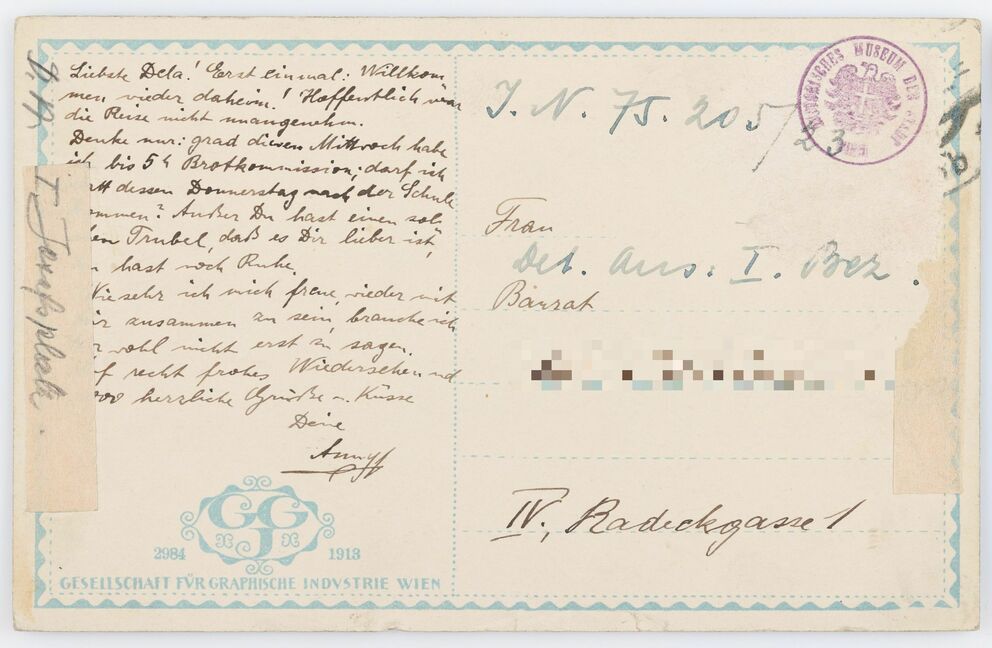 Liebste Dela! Erst einmal: Willkom
men wieder daheim! Hoffentlich war
die Reise nicht unangenehm.
Denke nur: grad diesen Mittwoch habe
ich bis 5h Brotkommission; darf ich
att dessen Donnerstag nach der Schule
ommen? Außer Du hast einen sol-
en Trubel, daß es Dir lieber ist,
hast noch Ruhe.
Wie sehr ich mich freue, wieder mit
ir zusammen zu sein, brauche ich
wohl nicht erst zu sagen.
f recht frohes Wiedersehen und
000 herzliche Grüße u. Küsse
Deine
I. N. 75.205/23
HISTORISCHES MUSEUM DER STADT WIEN
Frau
Det. Aus. I. Bez.
Baurat
IV., Radeckgasse 1
I Josefsplatz.
GJG
2984 1913
GESELLSCHAFT FÜR GRAPHISCHE INDVSTRIE WIEN